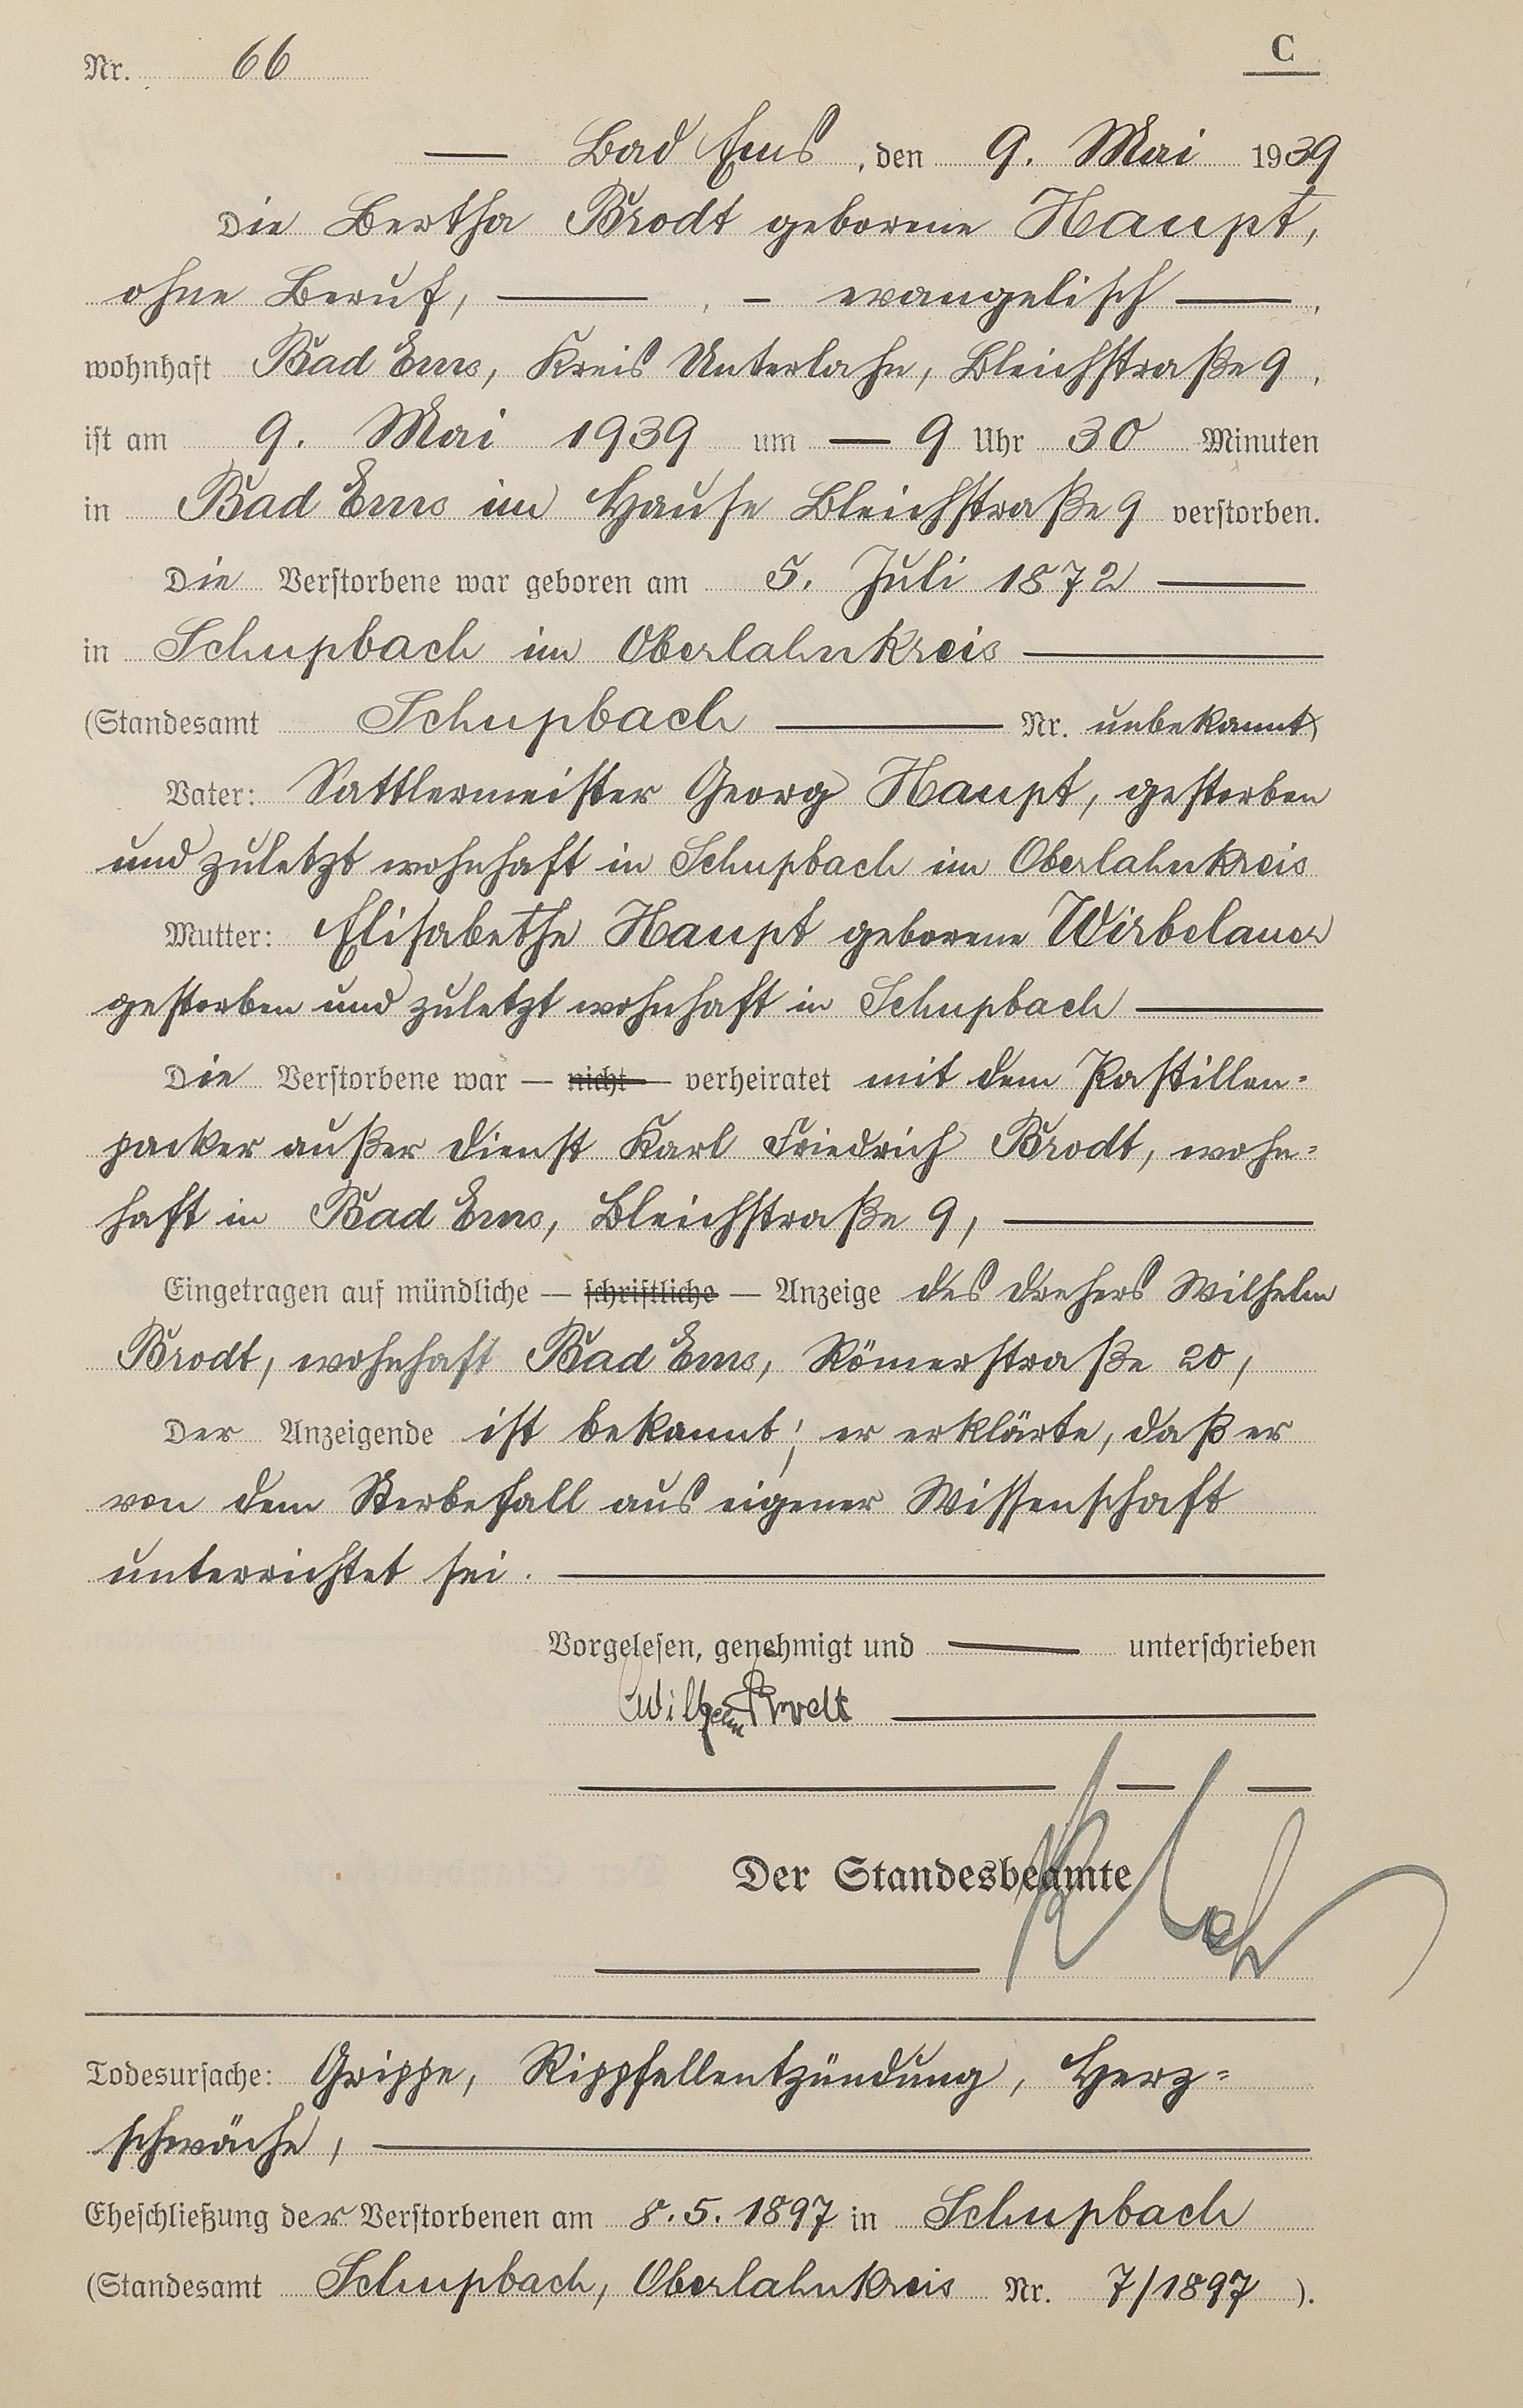 Nr. 66 C
— Bad Ems, den 9. Mai 1939
Die Bertha Brodt geborene Haupt,
ohne Beruf, — , — evangelisch —,
wohnhaft Bad Ems, Kreis Unterlahn, Bleichstraße 9,
ist am 9. Mai 1939 um — 9 Uhr 30 Minuten
in Bad Ems im Hause Bleichstraße 9 verstorben.
Die Verstorbene war geboren am 5. Juli 1872 —
in Schupbach im Oberlahnkreis —
(Standesamt Schupbach — Nr. unbekannt)
Vater: Sattlermeister Georg Haupt, gestorben
und zuletzt wohnhaft in Schupbach im Oberlahnkreis
Mutter: Elisabethe Haupt geborene Wirbelauer
gestorben und zuletzt wohnhaft in Schupbach —
Die Verstorbene war — nicht — verheiratet mit dem Pastillen-
packer außer Dienst Karl Friedrich Brodt, wohn-
haft in Bad Ems, Bleichstraße 9, —
Eingetragen auf mündliche — schriftliche — Anzeige des Drehers Wilhelm
Brodt, wohnhaft Bad Ems, Römerstraße 20,
Der Anzeigende ist bekannt; er erklärte, daß er
von dem Sterbefall aus eigener Wissenschaft
unterrichtet sei. —
Vorgelesen, genehmigt und — unterschrieben
Wilhelm Brodt —
Der Standesbeamte
Todesursache: Grippe, Rippfellentzündung, Herz-
schwäche, —
Eheschließung der Verstorbenen am 8.5.1897 in Schupbach
(Standesamt Schupbach, Oberlahnkreis Nr. 7/1897 ).